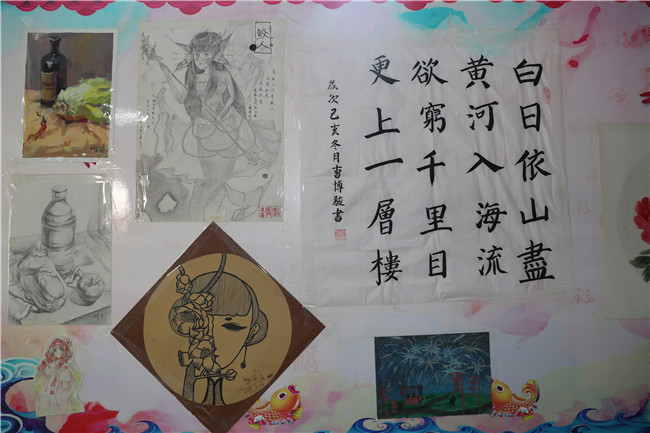 白日依山盡
黄河入海流
欲窮千里目
更上一層樓
歲次己亥冬月吉博駿書
鲛人